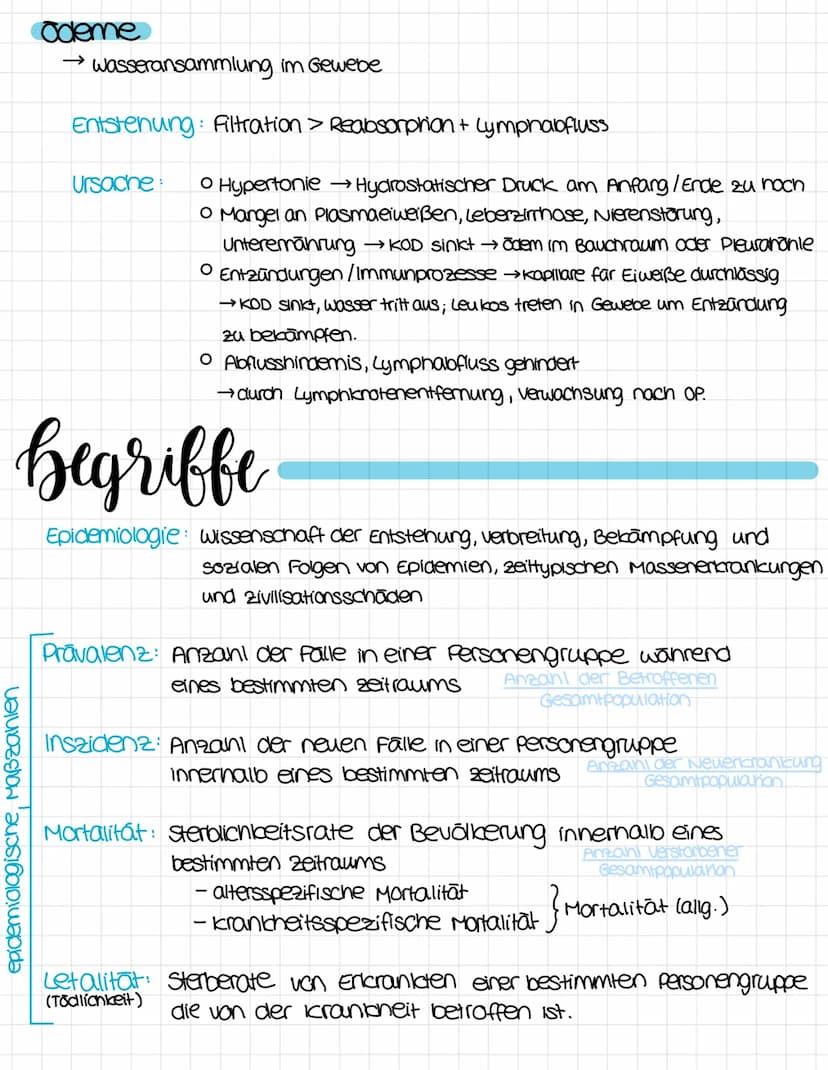 Ödeme
→ Wasseransammlung im Gewebe
Entstehung: Filtration > Reabsorption + Lymphabfluss
Ursache: o Hypertonie → Hydrostatischer Druck am Anfang/Ende zu hoch
o Mangel an Plasmaeiweißen, Leberzirrhose, Nierenstörung,
Unterernährung → KOD sinkt → Ödem im Bauchraum oder Pleurahöhle
o Entzündungen/Immunprozesse → Kapillare für Eiweiße durchlässig
→ KOD sinkt, Wasser tritt aus; Leukos treten in Gewebe um Entzündung
zu bekämpfen.
o Abflusshindernis, Lymphabfluss gehindert
→ durch Lymphknotenentfernung, Verwachsung nach OP.
Begriffe
Epidemiologie: Wissenschaft der Entstehung, Verbreitung, Bekämpfung und
sozialen Folgen von Epidemien, zeittypischen Massenerkrankungen
und Zivilisationsschäden
epidemiologische Maßzahlen
Prävalenz: Anzahl der Fälle in einer Personengruppe während
eines bestimmten Zeitraums
Anzahl der Betroffenen
Gesamtpopulation
Inszidenz: Anzahl der neuen Fälle in einer Personengruppe
innerhalb eines bestimmten Zeitraums
Anzahl der Neuerkrankung
Gesamtpopulation
Mortalität: Sterblichkeitsrate der Bevölkerung innerhalb eines
bestimmten Zeitraums
Anzahl Verstorbener
Gesamtpopulation
- altersspezifische Mortalität
- krankheitsspezifische Mortalität } Mortalität (allg.)
Letalität: Sterberate von Erkrankten einer bestimmten Personengruppe
(Tödlichkeit)
die von der Krankheit betroffen ist.